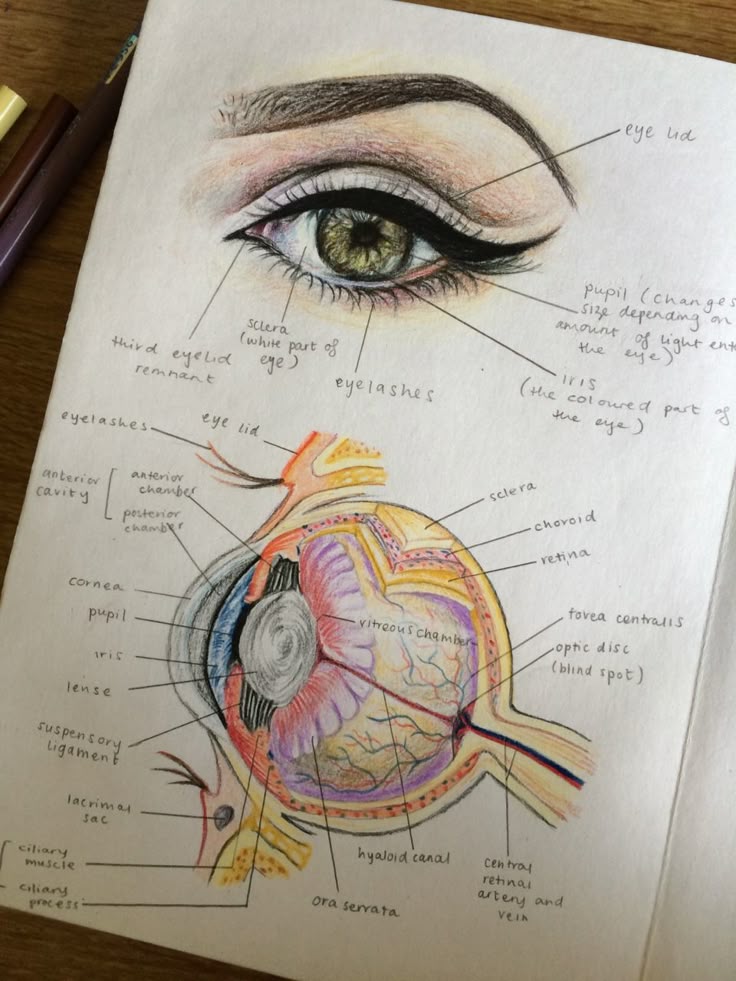 eye lid
pupil (changes
size depending on
amount of light ent
the eye)
sclera
(white part of
eye)
third eyelid
remnant
eyelashes
iris
(the coloured part of
the eye)
eyelashes
eye lid
anterior
cavity
anterior
chamber
posterior
chamber
cornea
pupil
iris
lense
suspensory
ligament
lacrimal
sac
ciliary
muscle
ciliary
process
sclera
choroid
retina
vitreous chamber
fovea centralis
optic disc
(blind spot)
hyaloid canal
ora serrata
central
retinal
artery and
vein